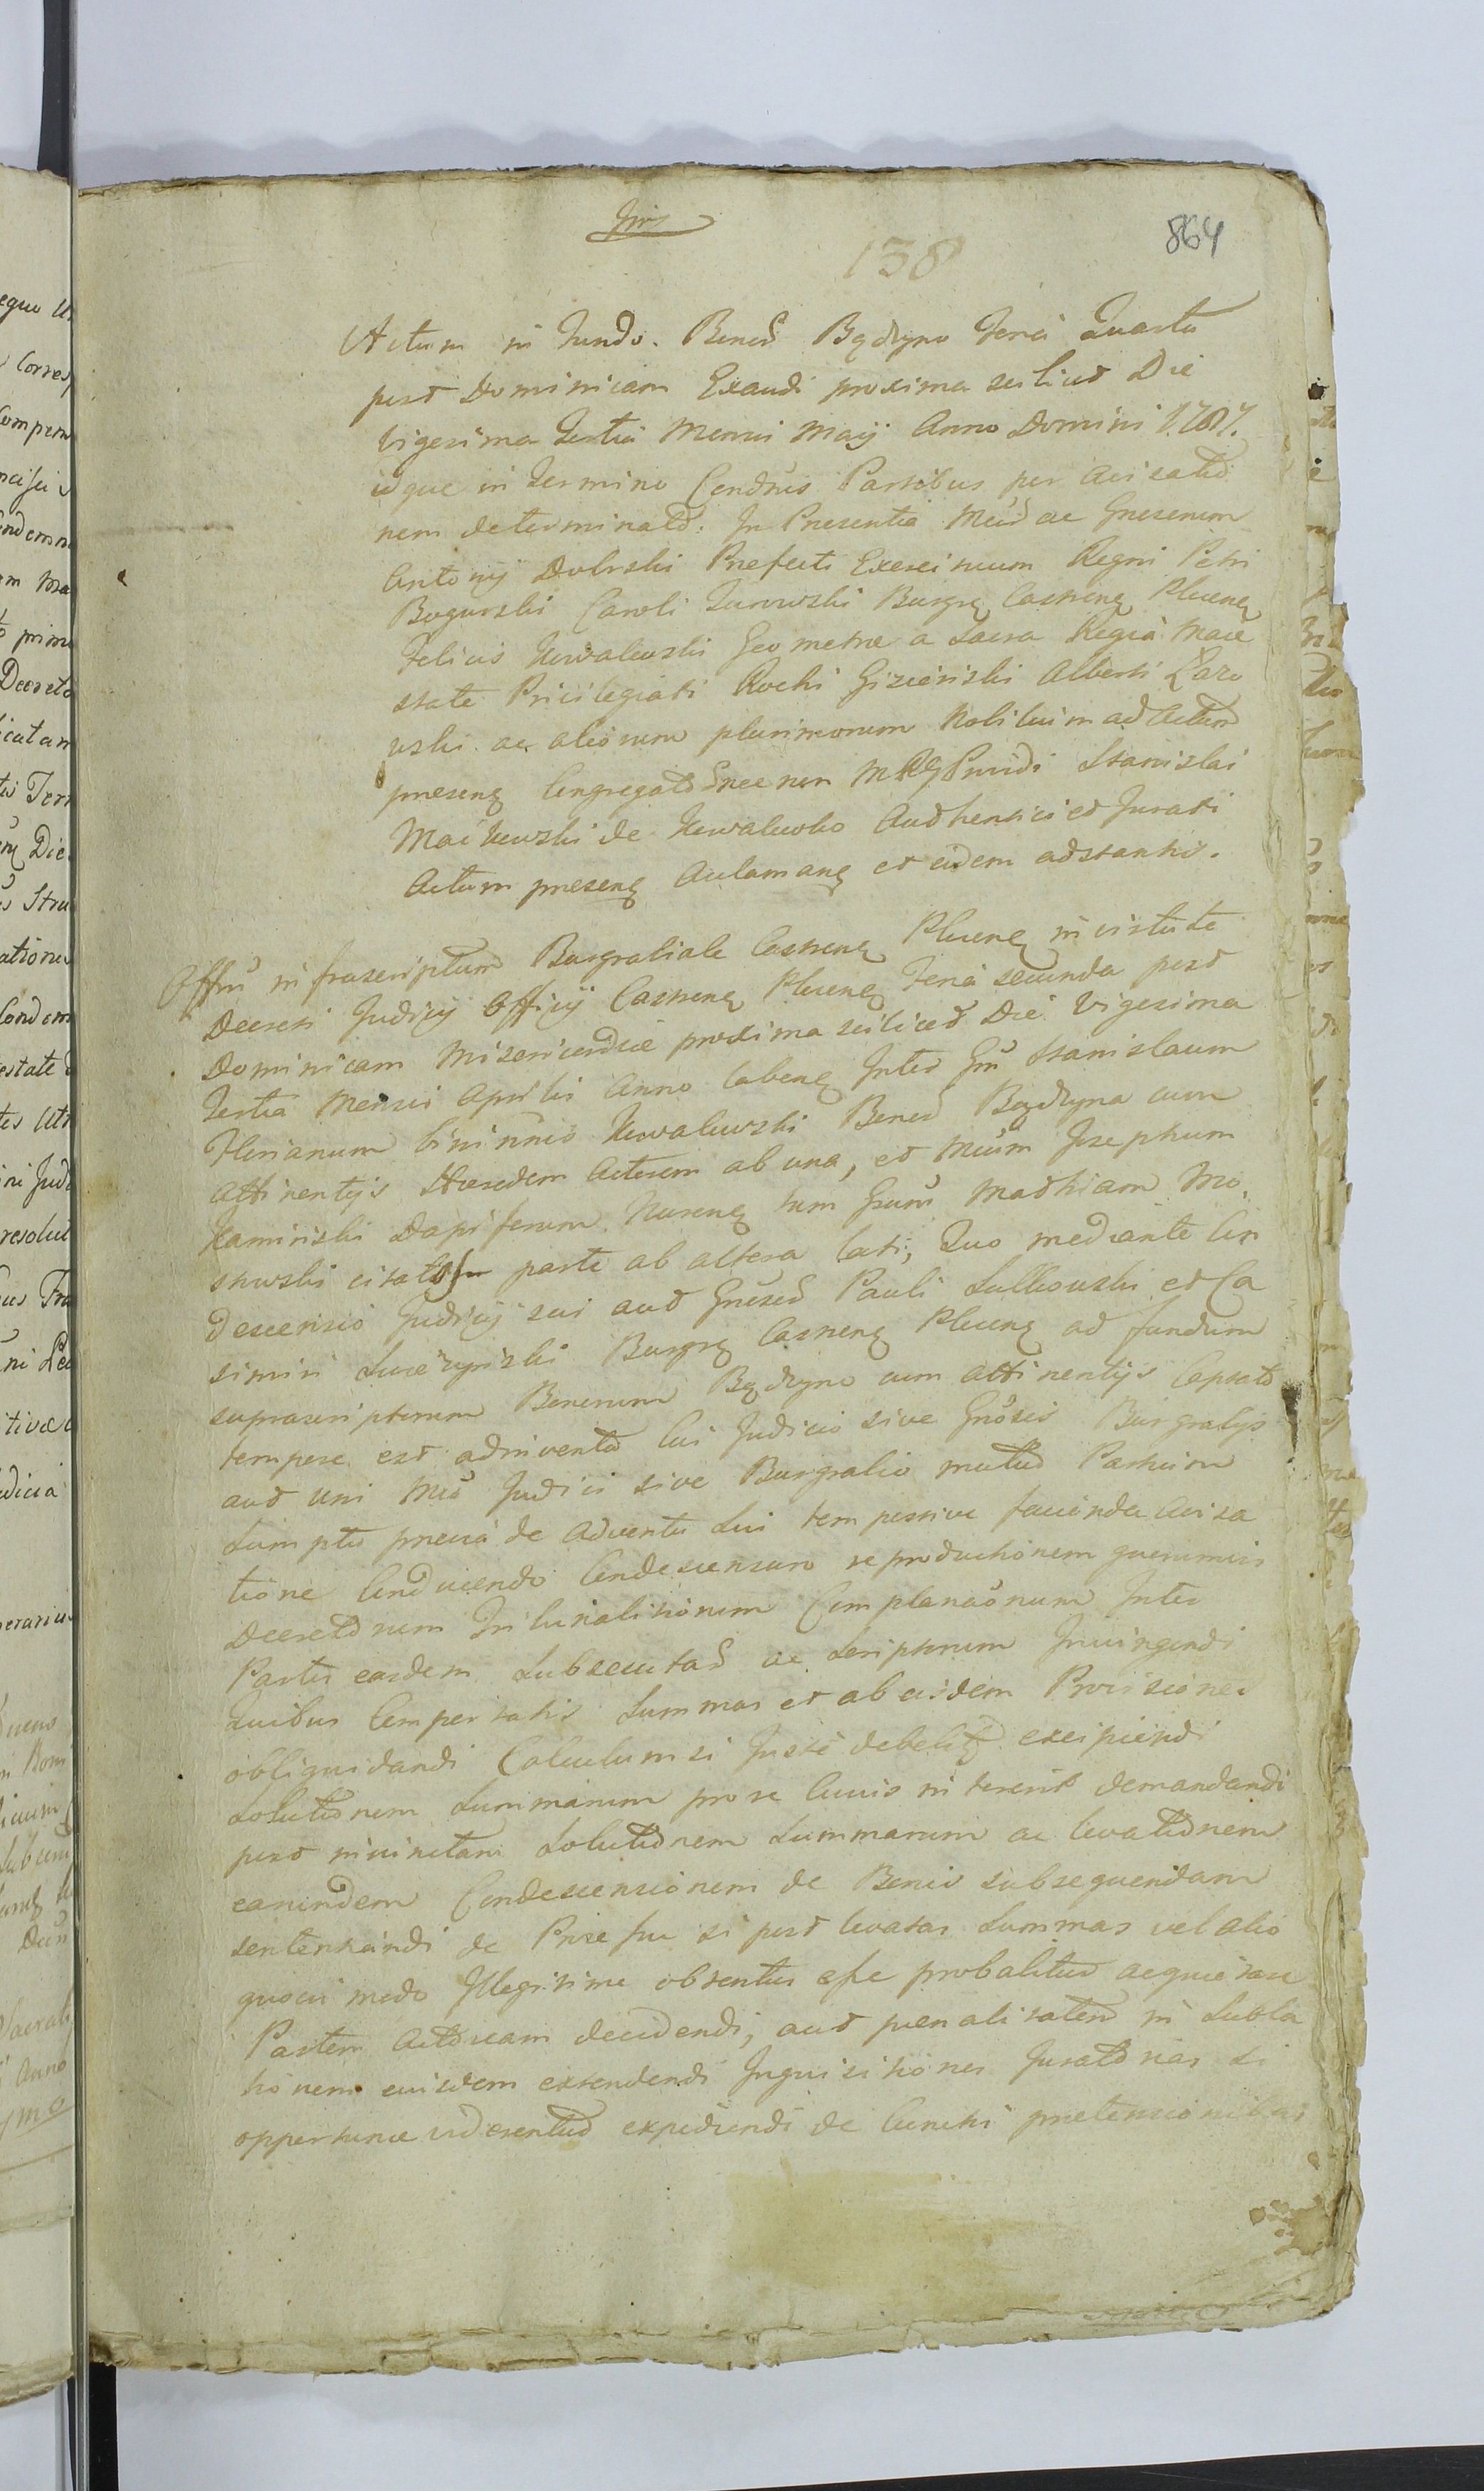 864
138
Actum in Fundo. Bonoȓ Bądzyno Feria Quarta
post Dominicam Exaudi proxima scilicet Die
Vigesima Tertia Mensis Maij Anno Domini 1787.
idque in Termino Condnis Partibus per Avisatio
nem determinato. In Presentia ac Gnesorum
Antonij Dobrski Prefecti Exercituum Regni Petri
Bogurski Caroli Turowski Burgrę Castrenę Plocenę
Felicis Kowalewski Geometræ a Sacra Regia Maie
state Privilegiati Rochi Giziński Alberti Łazo
wski ac aliorum plurimorum Nobilium ad Actum
presenę Congregato nec non Providi Stanislai
Maikowski de Kowalewko Authentici et Jurati
Actum presenę Aclamanę et eidem adstantis.
Offm infrascriptum Burgrabiale Castrenę Plocenę in virtute
Decreti Judicij Officij Castrenę Plocenę Feria secunda post
Dominicam Misericordiæ proxima scilicet Die Vigesima
Tertia Mensis Aprilis Anno labenę Inter Gm Stanislaum
Florianum binimio Kowalewski Bonoȓ Bądzyna cum
Attinentijs Hæredem Actorem ab una, et Mcum Josephum
Kamiński Dapiferum tum Gsum Mathiam Mo
stowski citato parte ab altera lati, Quo mediante Con
Descensio Judicij sui aut Gnesoȓ Pauli Sulkowski et Ca
simiri Burgrę Castrenę Plocenę ad fundum
suprascriptorum Bonorum Bądzyno cum attinentijs Captato
tempore est adinventa Cui Judicio sive Gnosis Burgrabijs
aut uni Judici sive Burgrabio mutuo Partium
Sumptu previa de Adventu Sui tempestive facienda Avisa
tione Conducendo Condescensuro reproductionem quorumvis
Decretorum Complanaonum Inter
Partes easdem Subsecutaȓ ac Scriptorum Injungendi
Quibus Compertatis Summas et ab eisdem Provisiones
obliquidandi Calculum si Juste excipiendi
Solutionem Summarum pro re Cuius intererit demandandi
post Solutionem Summarum ac levationem
earundem Condescensionem de Bonis subsequendam
sententiandi de si post levatas Summas vel alio
quovis modo Illegitime obtentus esse probabitur acquietare
Partem Actoream decidendi, aut penalitatem in Subla
tionem eiusdem extendendi Inquisitiones Juratorias si
opportunæ viderentur expediendi de Cunctis pretensionibus